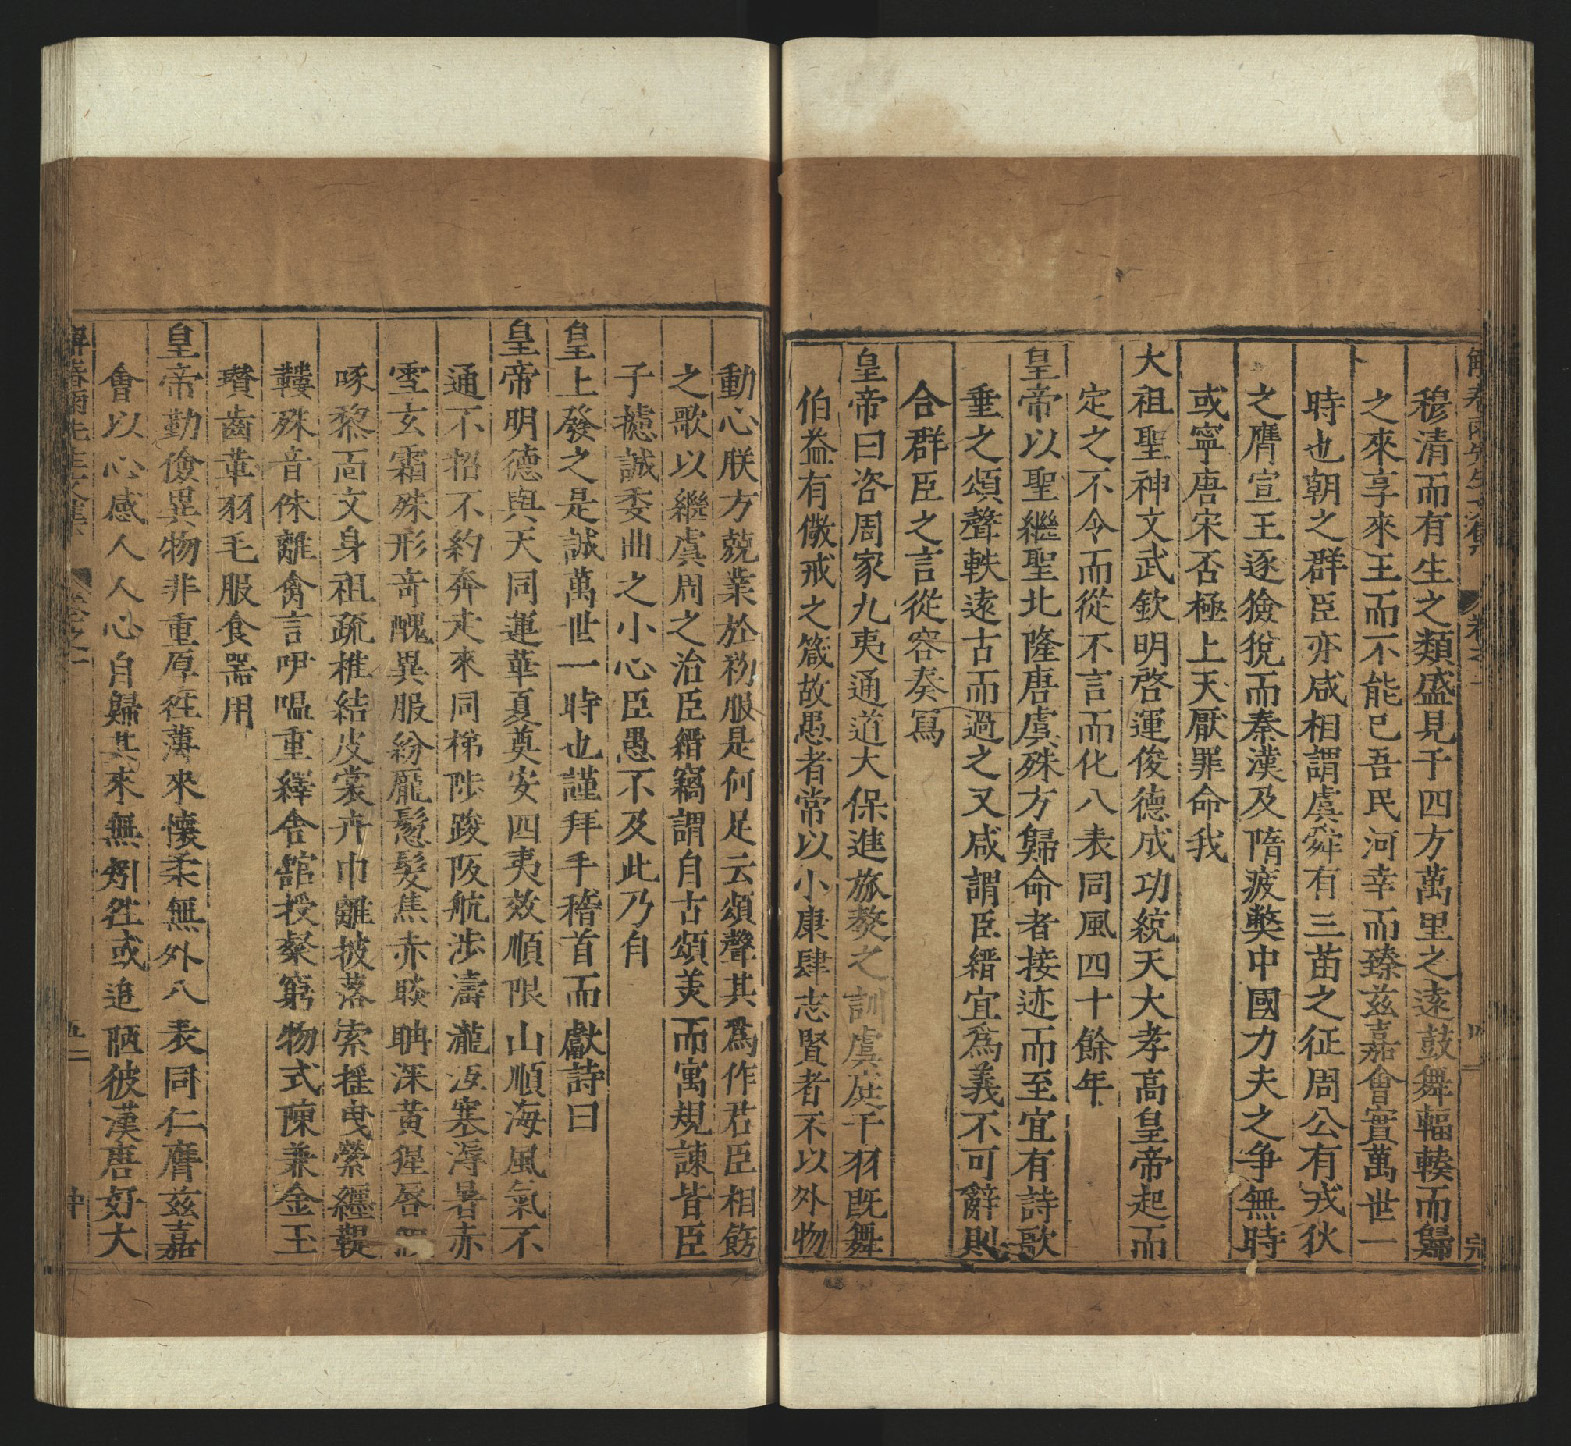 穆清而有生之類盛見于四方萬里之遠鼓舞輻輳而歸
之來享來王而不能已吾民河幸而臻茲嘉會實萬世一
時也朝之群臣亦咸相謂虞舜有三苗之征周公有戎狄
之膺宣王逐獫狁而秦漢及隋疲獘中國力夫之爭無時
或寧唐宋否極上天厭罪命我
大祖聖神文武欽明啓運俊德成功統天大孝高皇帝起而
定之不令而從不言而化八表同風四十餘年
皇帝以聖繼聖北隆唐虞殊方歸命者接迹而至宜有詩歌
垂之頌聲軼遠古而過之又咸謂臣縉宜爲義不可辭則
合群臣之言從容奏寫
皇帝曰咨周家九夷通道大保進旅獒之訓虞廷干羽既舞
伯益有儆戒之箴故愚者常以小康肆志賢者不以外物
動心朕方兢業於初服是何足云頌聲其爲作君臣相飭
之歌以繼虞周之治臣縉竊謂自古頌美而寓規諫皆臣
子攄誠委曲之小心臣愚不及此乃自
皇上發之是誠萬世一時也謹拜手稽首而獻詩曰
皇帝明德與天同運華夏奠安四夷效順限山順海風氣不
通不招不約奔走來同梯陟踆阪航涉濤瀧沍寒溽暑赤
雪玄霜殊形奇醜異服紛厖鬈髮焦赤睒睭深黃猩唇
啄黎面文身祖疏椎結皮裳卉巾離披落索搖曳縈纏鞮
鞻殊音侏離禽言呷嗢重繹舍舘授粲窮物式陳兼金玉
瓚齒革羽毛服食噐用
皇帝勤儉異物非重厚徃薄來懷柔無外八表同仁膺茲嘉
會以心感人人心自歸其來無列徃或追陋彼漢唐好大